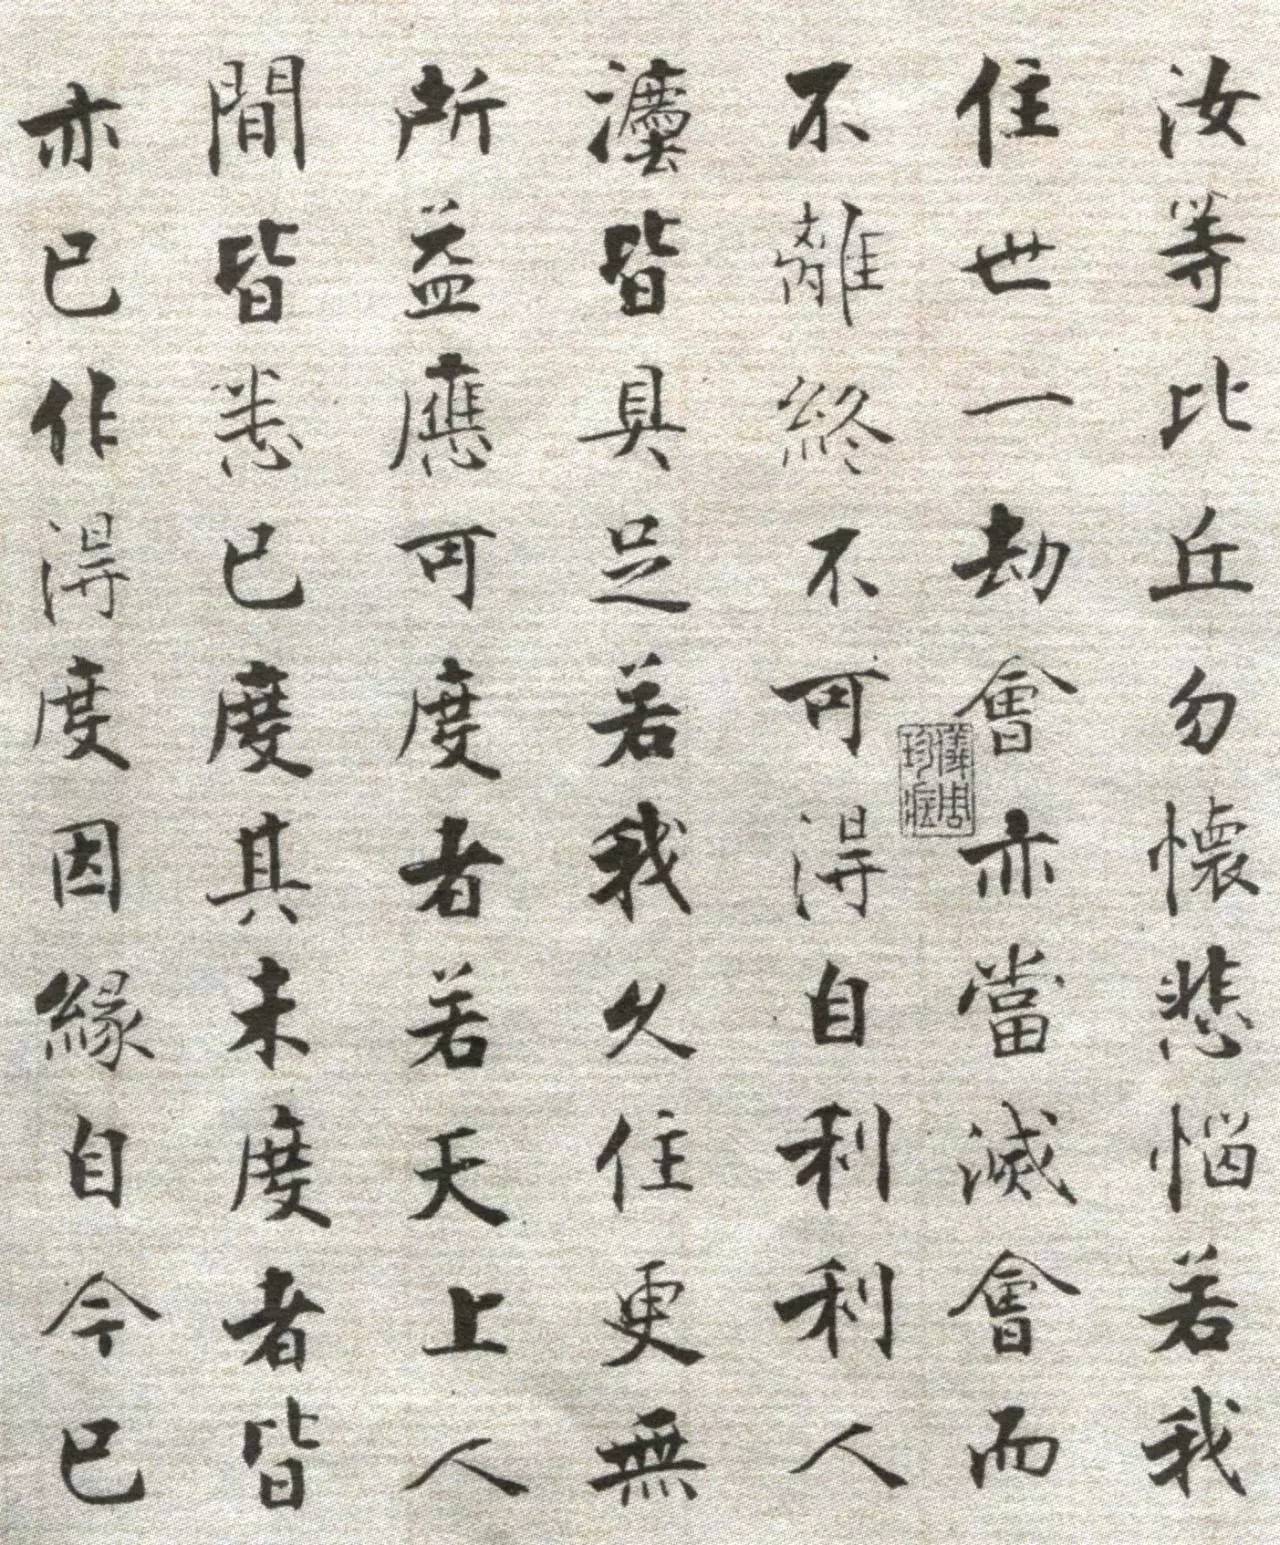 汝等比丘勿懷悲惱若我
住世一劫會亦當滅會而
不離終不可得自利利人
灋皆具足若我久住更無
所益應可度者若天上人
間皆悉已度其未度者皆
亦已作得度因緣自今已
儀周
珍藏